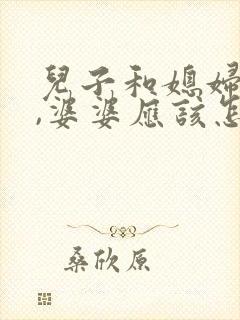 兒子和媳婦
,婆婆應該怎
桑欣原